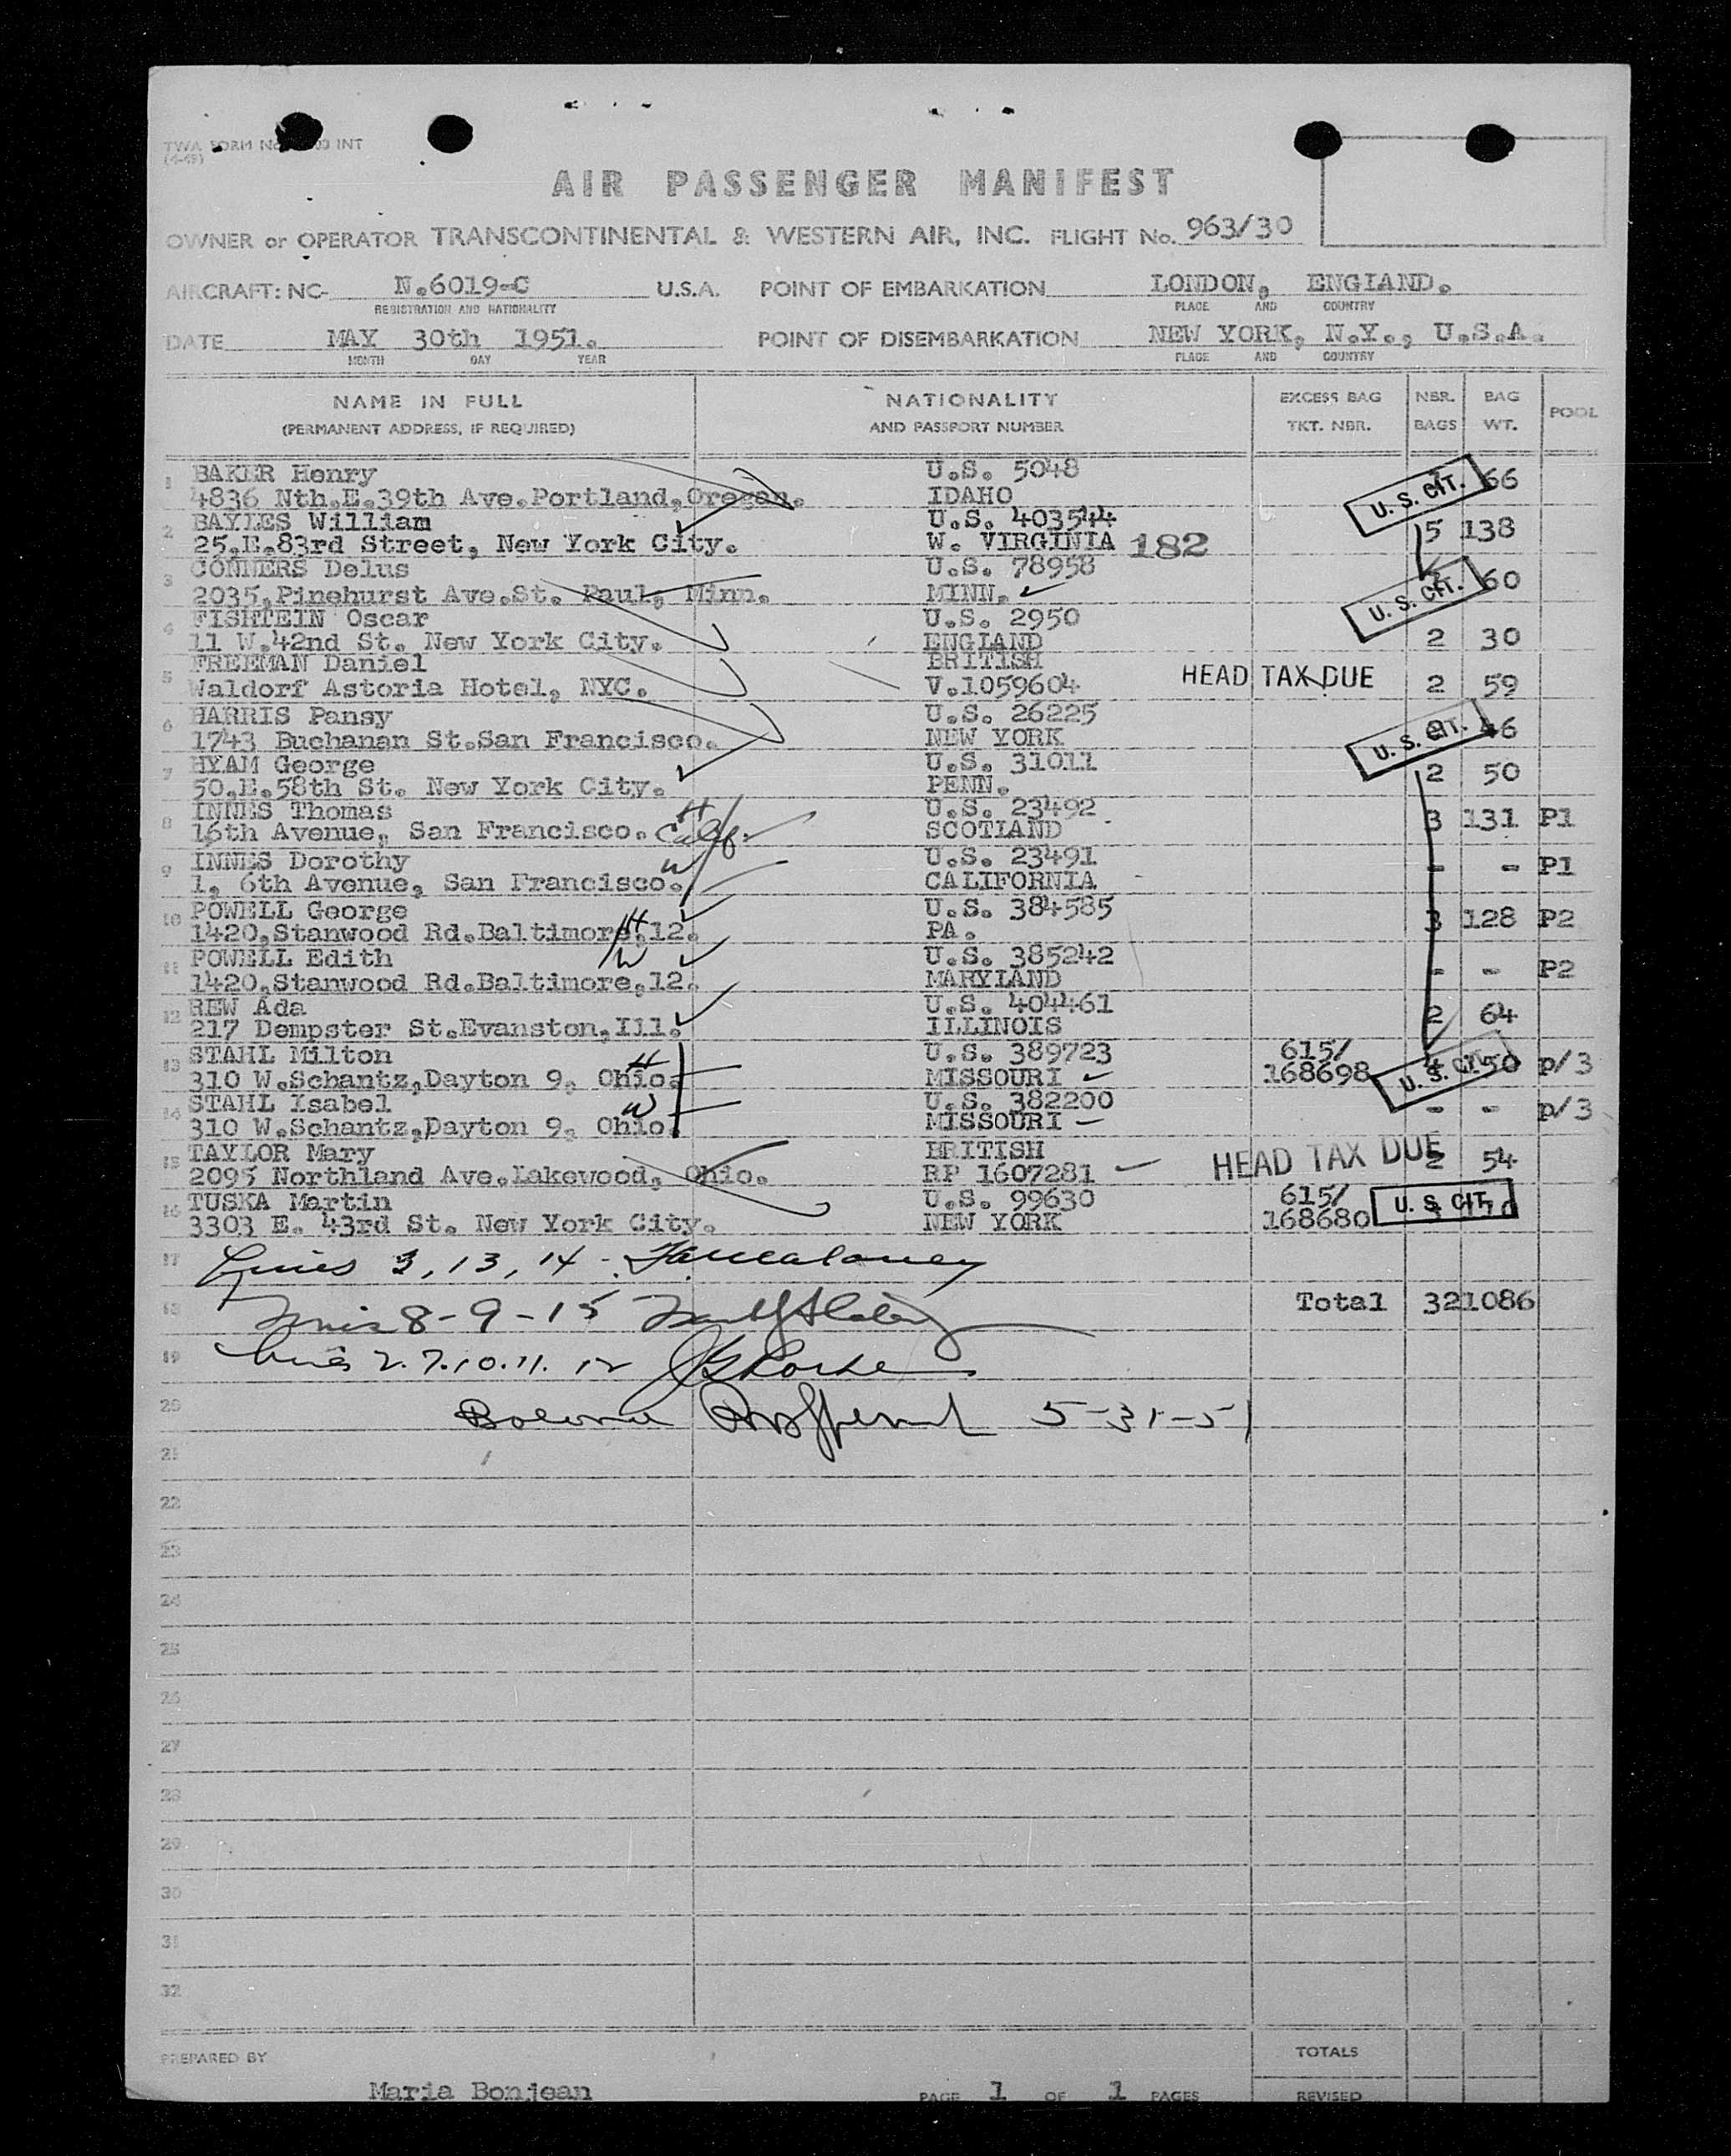 TWA FORM No. 03 INT
(4-49)
AIR PASSENGER MANIFEST
OWNER or OPERATOR TRANSCONTINENTAL & WESTERN AIR, INC. FLIGHT No. 963/30
AIRCRAFT: NC- N.6019-C U.S.A. POINT OF EMBARKATION LONDON, ENGLAND.
REGISTRATION AND NATIONALITY PLACE AND COUNTRY
DATE MAY 30th 1951. POINT OF DISEMBARKATION NEW YORK, N.Y., U.S.A.
MONTH DAY YEAR PLACE AND COUNTRY
NAME IN FULL NATIONALITY EXCESS BAG NBR. BAG POOL
(PERMANENT ADDRESS, IF REQUIRED) AND PASSPORT NUMBER TKT. NBR. BAGS WT.
1 BAKER Henry U.S. 5048 U.S. CIT. 66
4836 Nth.E.39th Ave.Portland,Oregan. IDAHO
2 BAYLES William U.S. 403544 5 138
25,E.83rd Street, New York City. W. VIRGINIA 182
3 CONNERS Delus U.S. 78958 U.S. CIT. 60
2035,Pinehurst Ave.St. Paul, Minn. MINN.
4 FISHTEIN Oscar U.S. 2950 2 30
11 W.42nd St. New York City. ENGLAND
5 FREEMAN Daniel BRITISH HEAD TAX DUE 2 59
Waldorf Astoria Hotel, NYC. V.1059604
6 HARRIS Pansy U.S. 26225 U.S. CIT. 46
1743 Buchanan St.San Francisco. NEW YORK
7 HYAM George U.S. 31011 2 50
50,E.58th St. New York City. PENN.
8 INNES Thomas H U.S. 23492 3 131 P1
16th Avenue, San Francisco. Calif. SCOTLAND
9 INNES Dorothy W U.S. 23491 - - P1
1, 6th Avenue, San Francisco. CALIFORNIA
10 POWELL George H U.S. 384585 3 128 P2
1420,Stanwood Rd.Baltimore,12. PA.
11 POWELL Edith W U.S. 385242 - - P2
1420,Stanwood Rd.Baltimore,12. MARYLAND
12 REW Ada U.S. 404461 2 64
217 Dempster St.Evanston,Ill. ILLINOIS
13 STAHL Milton H U.S. 389723 615/ U.S. CIT. 4 150 p/3
310 W.Schantz,Dayton 9, Ohio. MISSOURI 168698
14 STAHL Isabel W U.S. 382200 - - p/3
310 W.Schantz,Dayton 9, Ohio. MISSOURI
15 TAYLOR Mary BRITISH HEAD TAX DUE 2 54
2095 Northland Ave.Lakewood, Ohio. RP 1607281
16 TUSKA Martin U.S. 99630 615/ U.S. CIT.
3303 E. 43rd St. New York City. NEW YORK 168680
17 Lines 3, 13, 14
18 8-9-15 Total 321086
19 Lines 2.7.10.11.12
20 5-31-51
21
22
23
24
25
26
27
28
29
30
31
32
PREPARED BY TOTALS
Maria Bonjean PAGE 1 OF 1 PAGES REVISED